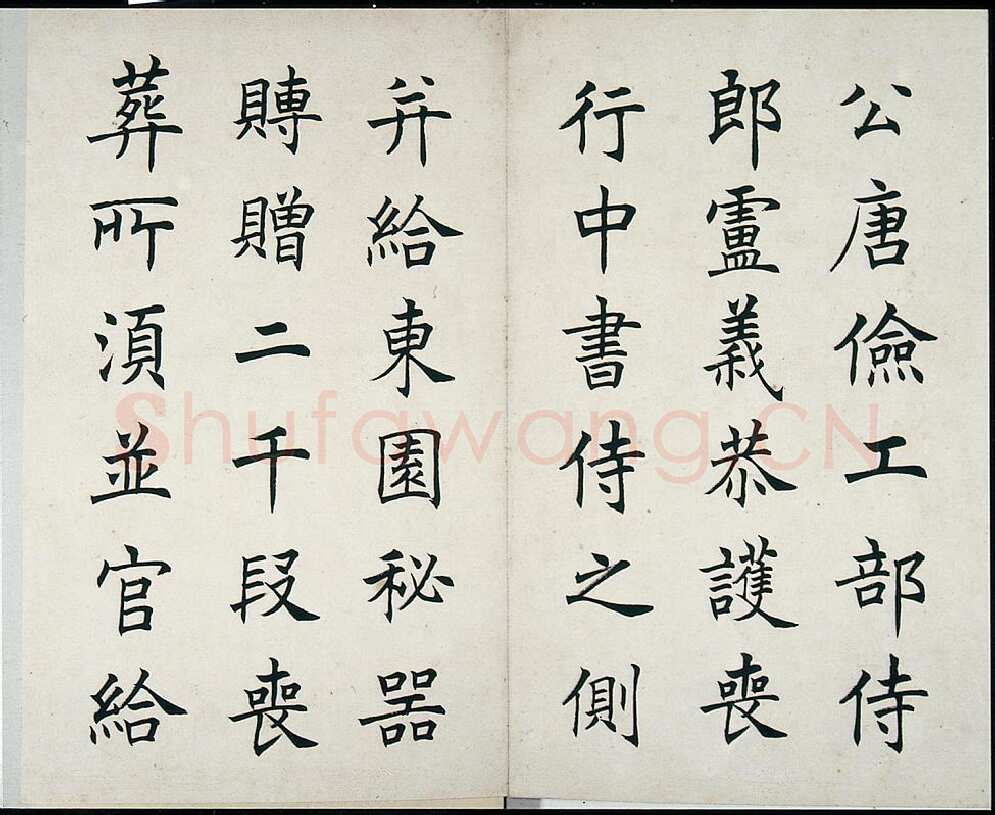 公唐儉工部侍
郎盧義恭護喪
行中書侍之側
并給東園秘器
賻贈二千段喪
葬所須並官給
Shufawang.CN